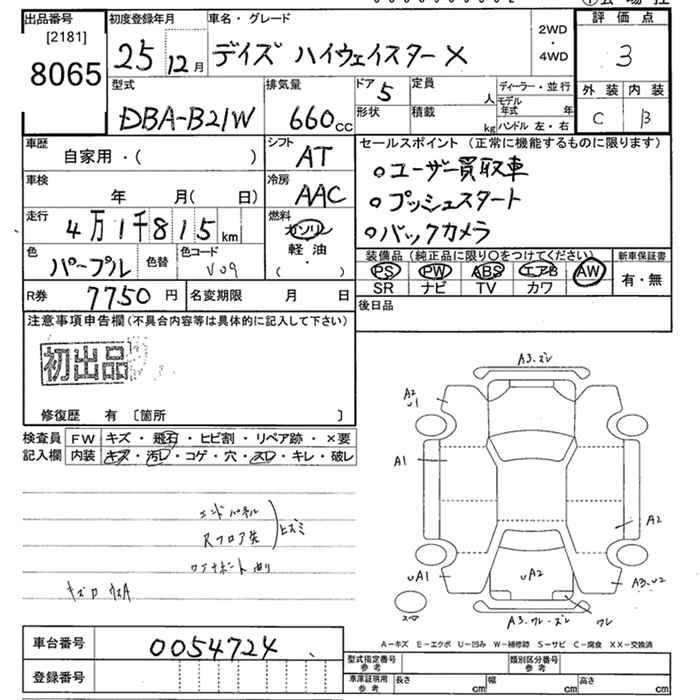 出品番号 初度登録年月 車名・グレード 2WD・4WD 評価点
[2181]
8065 25 12月 デイズ ハイウェイスターX 3
型式 排気量 ドア 定員 ディーラー・並行 外装 内装
5 人 モデル年式 年
DBA-B21W 660cc 形状 積載 kg ハンドル 左・右 C B
車歴 シフト セールスポイント (正常に機能するものに限ります)
自家用・( ) AT
○ユーザー買取車
車検 冷房
年 月( 日) AAC ○プッシュスタート
走行 燃料
4万1千815km ガソリン ○バックカメラ
軽油
色 色替 色コード ( ・ )
パープル V09
装備品 (純正品に限り○をつけてください) 新車保証書
PS PW ABS エアB AW 有・無
SR ナビ TV カワ
R券 7750円 名変期限 月 日
後日品
注意事項申告欄 (不具合内容等は具体的に記入して下さい)
初出品
修復歴 有 〔箇所 〕
検査員 FW キズ・飛石・ヒビ割・リペア跡・×要
記入欄 内装 キズ・汚レ・コゲ・穴・スレ・キレ・破レ
エンドパネル
Rフロア先 ヒズミ
A3.ズレ
A2
U1
A1
A2
UA1 UA2 A3.U2
A3.ワレ.ズレ ワレ
A-キズ E-エクボ U-凹み W-補修跡 S-サビ C-腐食 XX-交換済
車台番号 0054724
登録番号
型式指定番号 参考 類別区分番号 参考
車庫証明用 参考 長さ cm 幅 cm 高さ cm